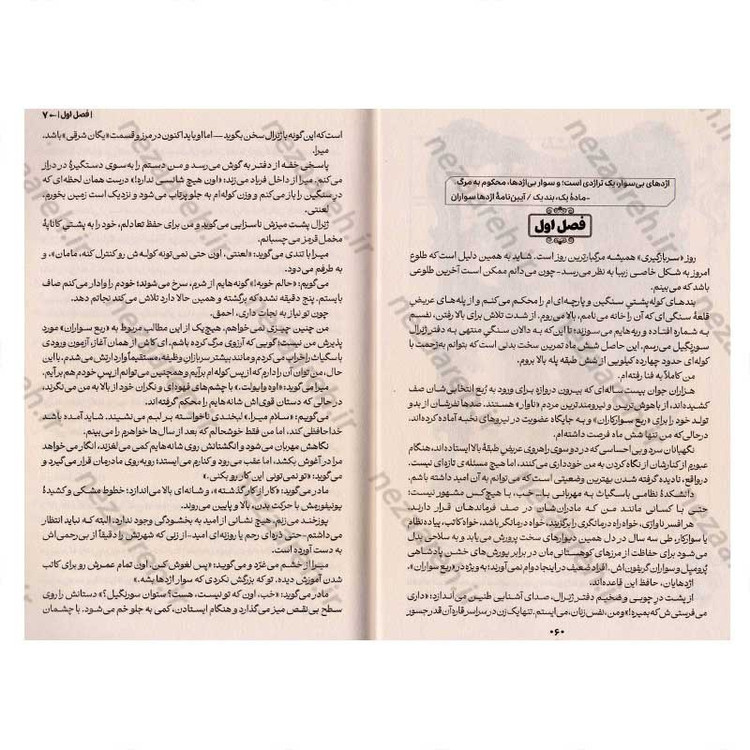 اژدهای بی‌سوار، یک تراژدی است؛ و سوار بی‌اژدها، محکوم به مرگ.
-مادهٔ یک، بند یک / آیین‌نامهٔ اژدها سواران
فصل اول
روز «سربازگیری» همیشه مرگبارترین روز است. شاید به همین دلیل است که طلوع
امروز به شکل خاصی زیبا به نظر می‌رسد-چون می‌دانم ممکن است آخرین طلوعی
باشد که می‌بینم.
بندهای کوله‌پشتی سنگین و پارچه‌ای‌ام را محکم می‌کنم و از پله‌های عریض
قلعهٔ سنگی‌ای که آن را خانه می‌نامم، بالا می‌روم. از شدت تلاش برای بالا رفتن، نفسم
به شماره افتاده و ریه‌هایم می‌سوزند؛ تا این‌که به دالان سنگی منتهی به دفتر ژنرال
سورنگیل می‌رسم. این حاصل شش ماه تمرین سخت بدنی است که بتوانم به‌زحمت با
کوله‌ای حدود چهارده کیلویی از شش طبقه پله بالا بروم.
من کاملاً به فنا رفته‌ام.
هزاران جوان بیست ساله‌ای که بیرون دروازه برای ورود به رُبع انتخابی‌شان صف
کشیده‌اند، از باهوش‌ترین و نیرومندترین مردم «ناوار» هستند. صدها نفرشان از بدو
تولد خود را برای «ربع سوارکاران» و به جایگاه عضویت در نیروهای نخبه آماده کرده‌اند.
درحالی‌که من تنها شش ماه فرصت داشته‌ام.
نگهبانان سرد و بی‌احساسی که در دو سوی راهروی عریض طبقهٔ بالا ایستاده‌اند، هنگام
عبورم از کنارشان از نگاه کردن به من خودداری می‌کنند، اما هیچ مسئله‌ی تازه‌ای نیست.
درواقع، نادیده گرفته شدن بهترین وضعیتی است که می‌توانم به آن امید داشته باشم.
دانشکدهٔ نظامی باسگیاث به مهربانی با... خب، با هیچ‌کس مشهور نیست؛
حتی با کسانی مانند من که مادرانشان در صف فرماندهان قرار دارند.
هر افسر ناواری، خواه راه درمانگری را برگزیند، خواه درمانگر باشد، خواه کاتب، پیاده نظام
یا سوارکار، طی سه سال در دل همین دیوارهای سخت پرورش می‌یابد و به سلاحی بدل
می‌شود برای حفاظت از مرزهای کوهستانی‌مان در برابر یورش‌های خشن پادشاهی
پُرومیل و سواران گریفون‌اش. افراد ضعیف در اینجا دوام نمی‌آورند؛ به‌ویژه در «ربع سواران».
اژدهایان، حافظ این قاعده‌اند.
از پشت درِ چوبی و ضخیم دفتر ژنرال، صدای آشنایی طنین می‌اندازد: «داری
می‌فرستی‌ش که بمیره!» و من، نفس زنان، می‌ایستم. تنها یک زن در سراسر قاره آن قدر جسور
۰۶۰
| فصل اول | ← ۷
است که این گونه با ژنرال سخن بگوید—اما او باید اکنون در مرز و قسمت «یگان شرقی» باشد.
میرا.
پاسخی خفه از دفتر به گوش می‌رسد و من دستم را به‌سوی دستگیرهٔ در دراز
می‌کنم. میرا از داخل فریاد می‌زند: «اون هیچ شانسی نداره!» درست همان لحظه‌ای که
درِ سنگین را باز می‌کنم و وزن کوله‌ام به جلو پرتاب می‌شود و نزدیک است زمین بخورم.
لعنتی.
ژنرال پشت میزش ناسزایی می‌گوید و من برای حفظ تعادلم، خود را به پشتی کاناپهٔ
مخمل قرمز می‌چسبانم.
میرا با تندی می‌گوید: «لعنتی، اون حتی نمی‌تونه کوله‌ش رو کنترل کنه، مامان»، و
به طرفم می‌دود.
می‌گویم: «حالم خوبه!» گونه‌هایم از شرم، سرخ می‌شوند؛ خودم را وادار می‌کنم صاف
بایستم. پنج دقیقه نشده که برگشته و همین حالا دارد تلاش می‌کند نجاتم دهد.
چون تو نیاز به نجات داری، احمق.
من چنین چیزی نمی‌خواهم. هیچ‌یک از این مطالب مربوط به «ربع سواران» مورد
پذیرش من نیست؛ گویی که آرزوی مرگ کرده باشم. ای کاش از همان آغاز، آزمون ورودی
باسگیاث را خراب می‌کردم و مانند بیشتر سربازان وظیفه، مستقیماً وارد ارتش می‌شدم. با این
حال، من توان آن را دارم که از پس کوله‌ام برآیم و همچنین می‌توانم از پس خودم هم برآیم.
میرا می‌گوید: «اوه وایولت.» با چشم‌های قهوه‌ای و نگران خود از بالا به من می‌نگرند،
در حالی که دستان قوی‌اش شانه‌هایم را محکم گرفته‌اند.
می‌گویم: «سلام میرا.» لبخندی ناخواسته بر لبم می‌نشیند. شاید آمده باشد
خداحافظی کند، اما من فقط خوشحالم که بعد از سال‌ها خواهرم را می‌بینم.
نگاهش مهربان می‌شود و انگشتانش روی شانه‌هایم کمی می‌لغزند، انگار می‌خواهد
مرا در آغوش بکشد، اما عقب می‌رود و کنارم می‌ایستد؛ روبه‌روی مادرمان قرار می‌گیرد و
می‌گوید: «تو نمی‌تونی این کار رو بکنی.»
مادر می‌گوید: «کار از کار گذشته»، و شانه‌ای بالا می‌اندازد؛ خطوط مشکی و کشیدهٔ
یونیفورمش با حرکت بدن، بالا و پایین می‌روند.
پوزخند می‌زنم. هیچ نشانی از امید به بخشودگی وجود ندارد. البته که نباید انتظار
می‌داشتم-حتی ذره‌ای رحم یا روزنه‌ای امید-از زنی که شهرتش را دقیقاً از بی‌رحمی‌اش
به دست آورده است.
میرا از خشم می‌غرّد و می‌گوید: «پس لغوش کن. اون تمام عمرش رو برای کاتب
شدن آموزش دیده. تو که بزرگش نکردی که سوار اژدها بشه.»
مادر می‌گوید: «خب، اون که تو نیست، هست؟ ستوان سورنگیل؟» دستانش را روی
سطح بی‌نقص میز می‌گذارد و هنگام ایستادن، کمی به جلو خم می‌شود. با چشمان
nezaareh.ir